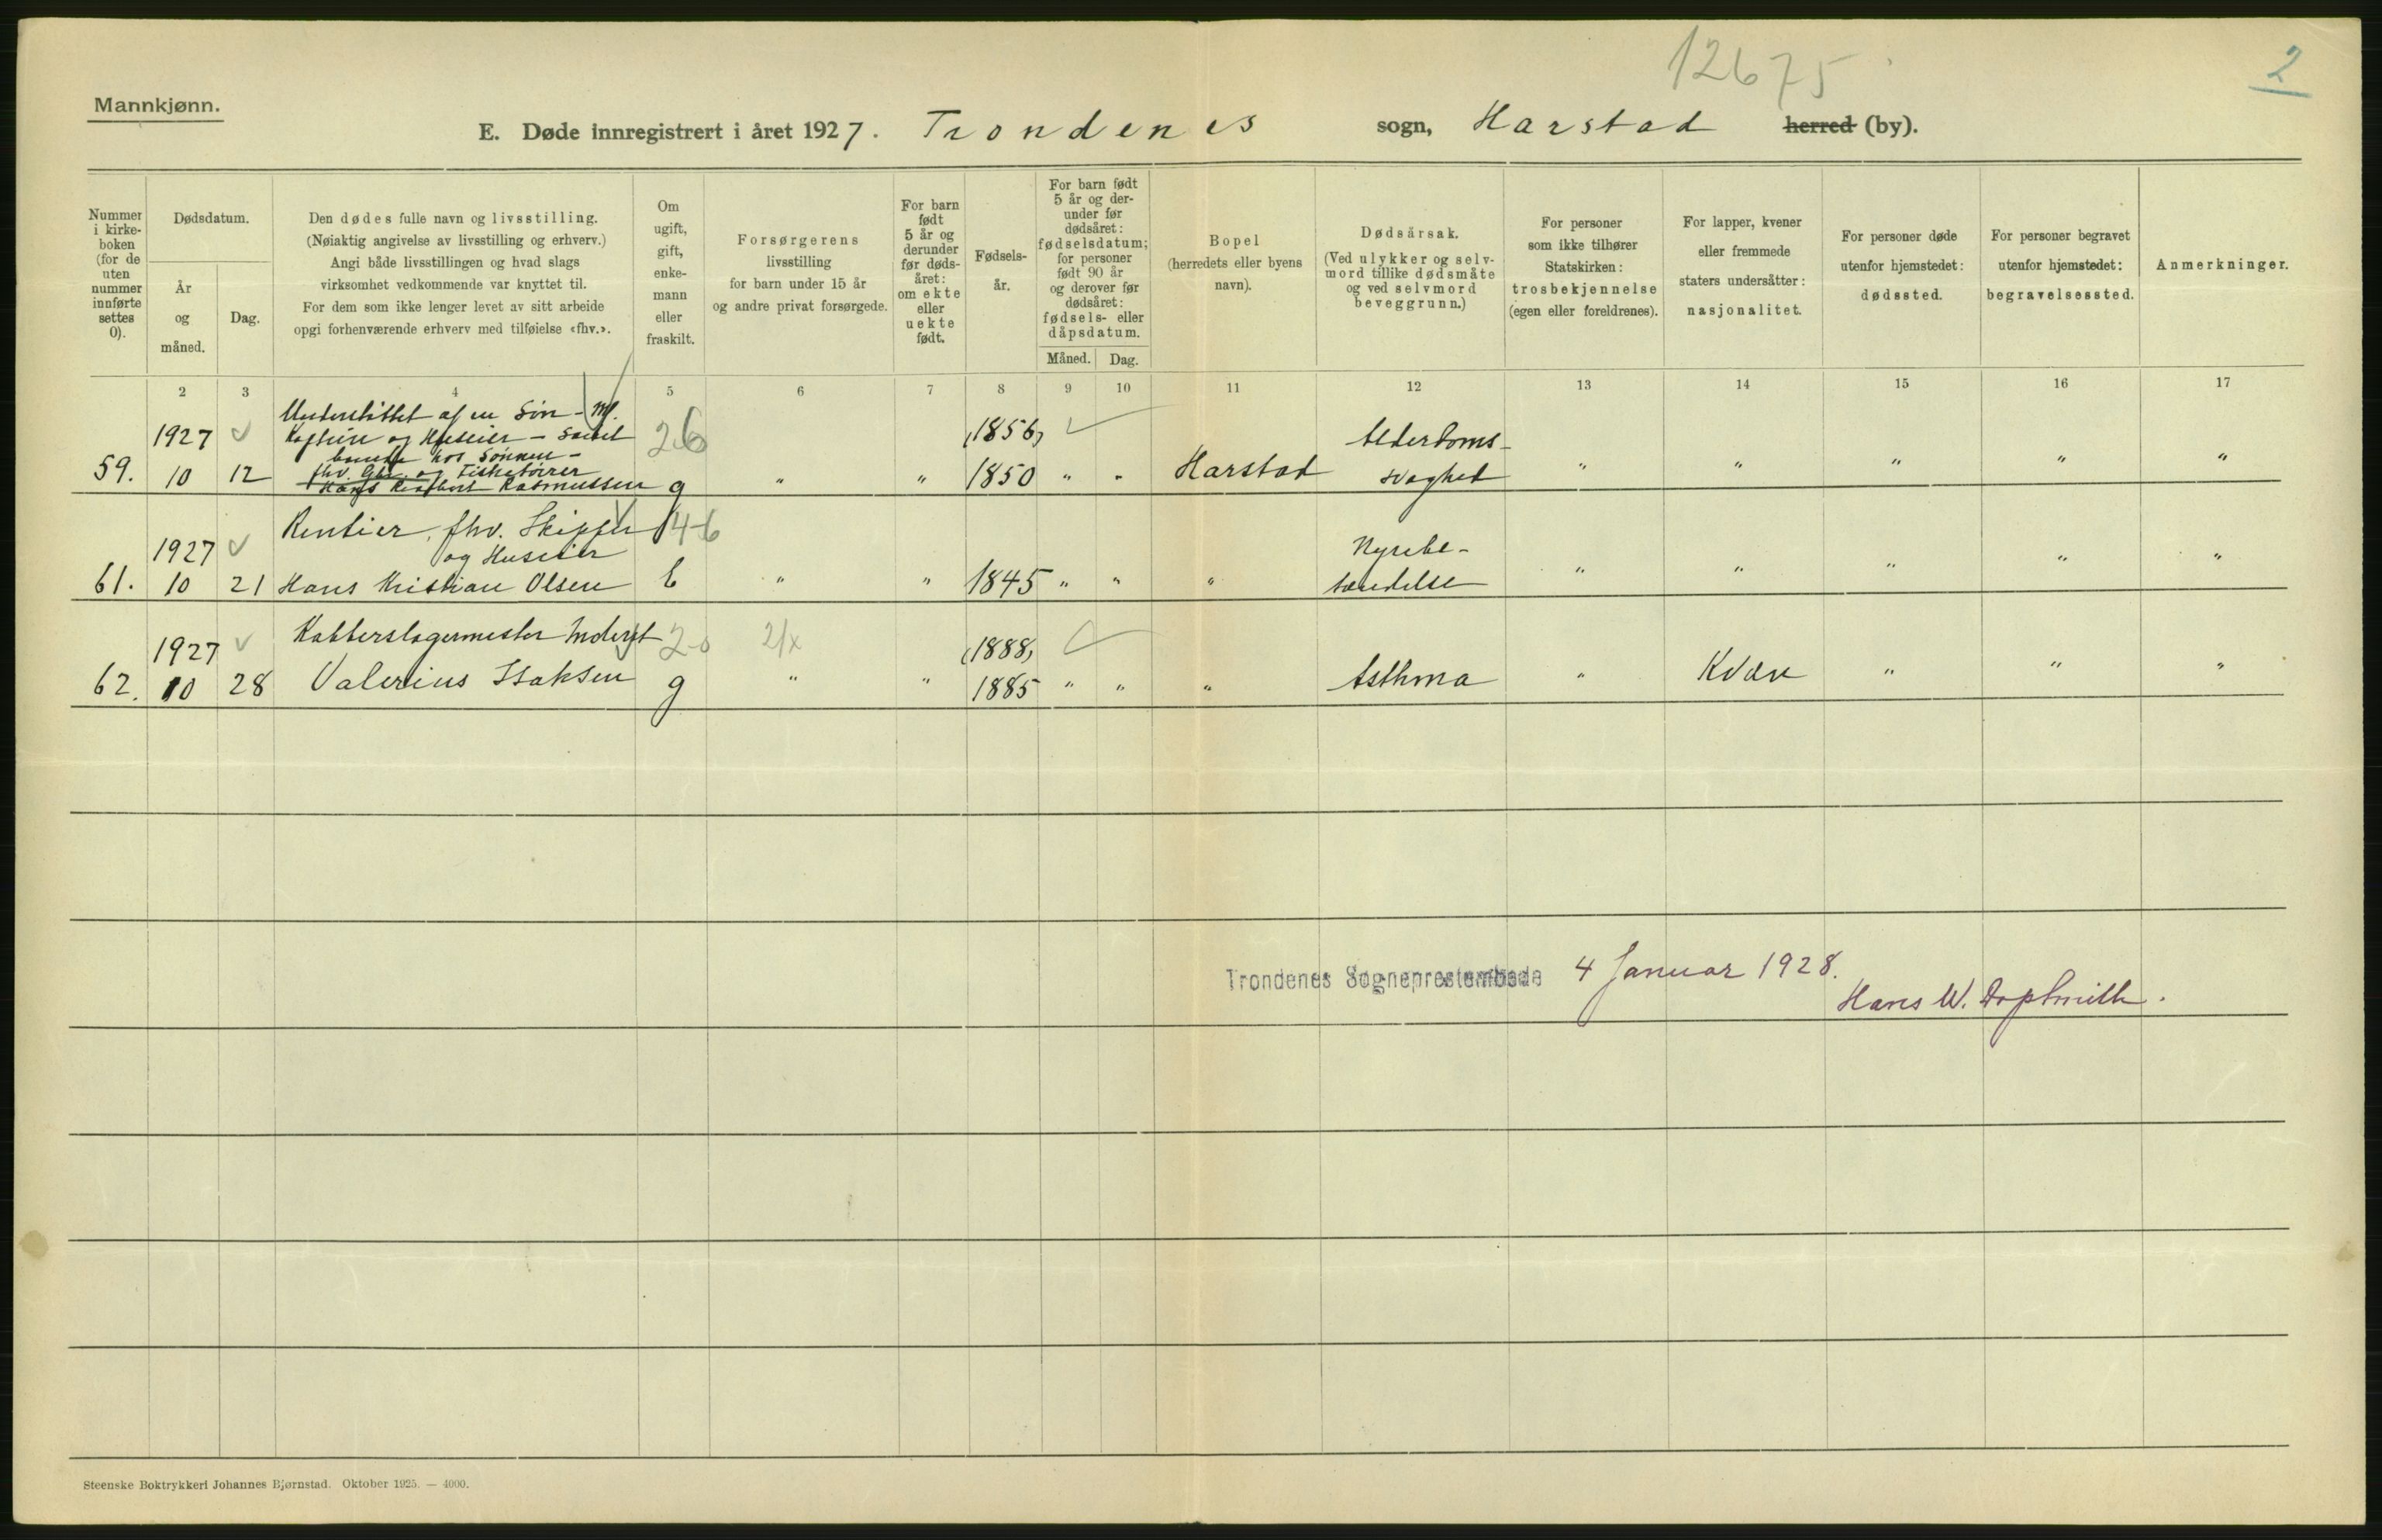 12675
2
Mannkjønn.
E. Døde innregistrert i året 1927. Trondenes sogn, Harstad herred (by).
Nummer i kirke-boken (for de uten nummer innførte settes 0).
Dødsdatum.
År og måned.
Dag.
Den dødes fulle navn og livsstilling.
(Nøiaktig angivelse av livsstilling og erhverv.)
Angi både livsstillingen og hvad slags
virksomhet vedkommende var knyttet til.
For dem som ikke lenger levet av sitt arbeide
opgi forhenværende erhverv med tilføielse «fhv.».
Om ugift, gift, enke-mann eller fraskilt.
Forsørgerens
livsstilling
for barn under 15 år
og andre privat forsørgede.
For barn født 5 år og derunder før døds-året: om ekte eller uekte født.
Fødsels-år.
For barn født 5 år og der-under før dødsåret: fødselsdatum; for personer født 90 år og derover før dødsåret: fødsels- eller dåpsdatum.
Måned. Dag.
Bopel
(herredets eller byens
navn).
Dødsårsak.
(Ved ulykker og selv-
mord tillike dødsmåte
og ved selvmord
beveggrunn.)
For personer
som ikke tilhører
Statskirken:
trosbekjennelse
(egen eller foreldrenes).
For lapper, kvener
eller fremmede
staters undersåtter:
nasjonalitet.
For personer døde
utenfor hjemstedet:
dødssted.
For personer begravet
utenfor hjemstedet:
begravelsessted.
Anmerkninger.
2 3 4 5 6 7 8 9 10 11 12 13 14 15 16 17
Understøttet af en Søn
1927 og Huseier - 26 (1856) Alderdoms-
hos Sønnen -
fhv. og
59. 10 12 Hans Rasmussen g " " 1850 " " Harstad svaghet " " " " "
Rentier, fhv. Skipper 46
1927 og Huseier Nyrebe-
61. 10 21 Hans Kristian Olsen E " " 1845 " " " tændelse " " " " "
Kobberslagermester 20 2/x
1927 (1888)
62. 10 28 Valerius Isaksen g " " 1885 " " " Asthma " Kvæn " " "
Trondenes Sogneprestembede 4 Januar 1928.
Hans W.
Steenske Boktrykkeri Johannes Bjørnstad. Oktober 1925. — 4000.